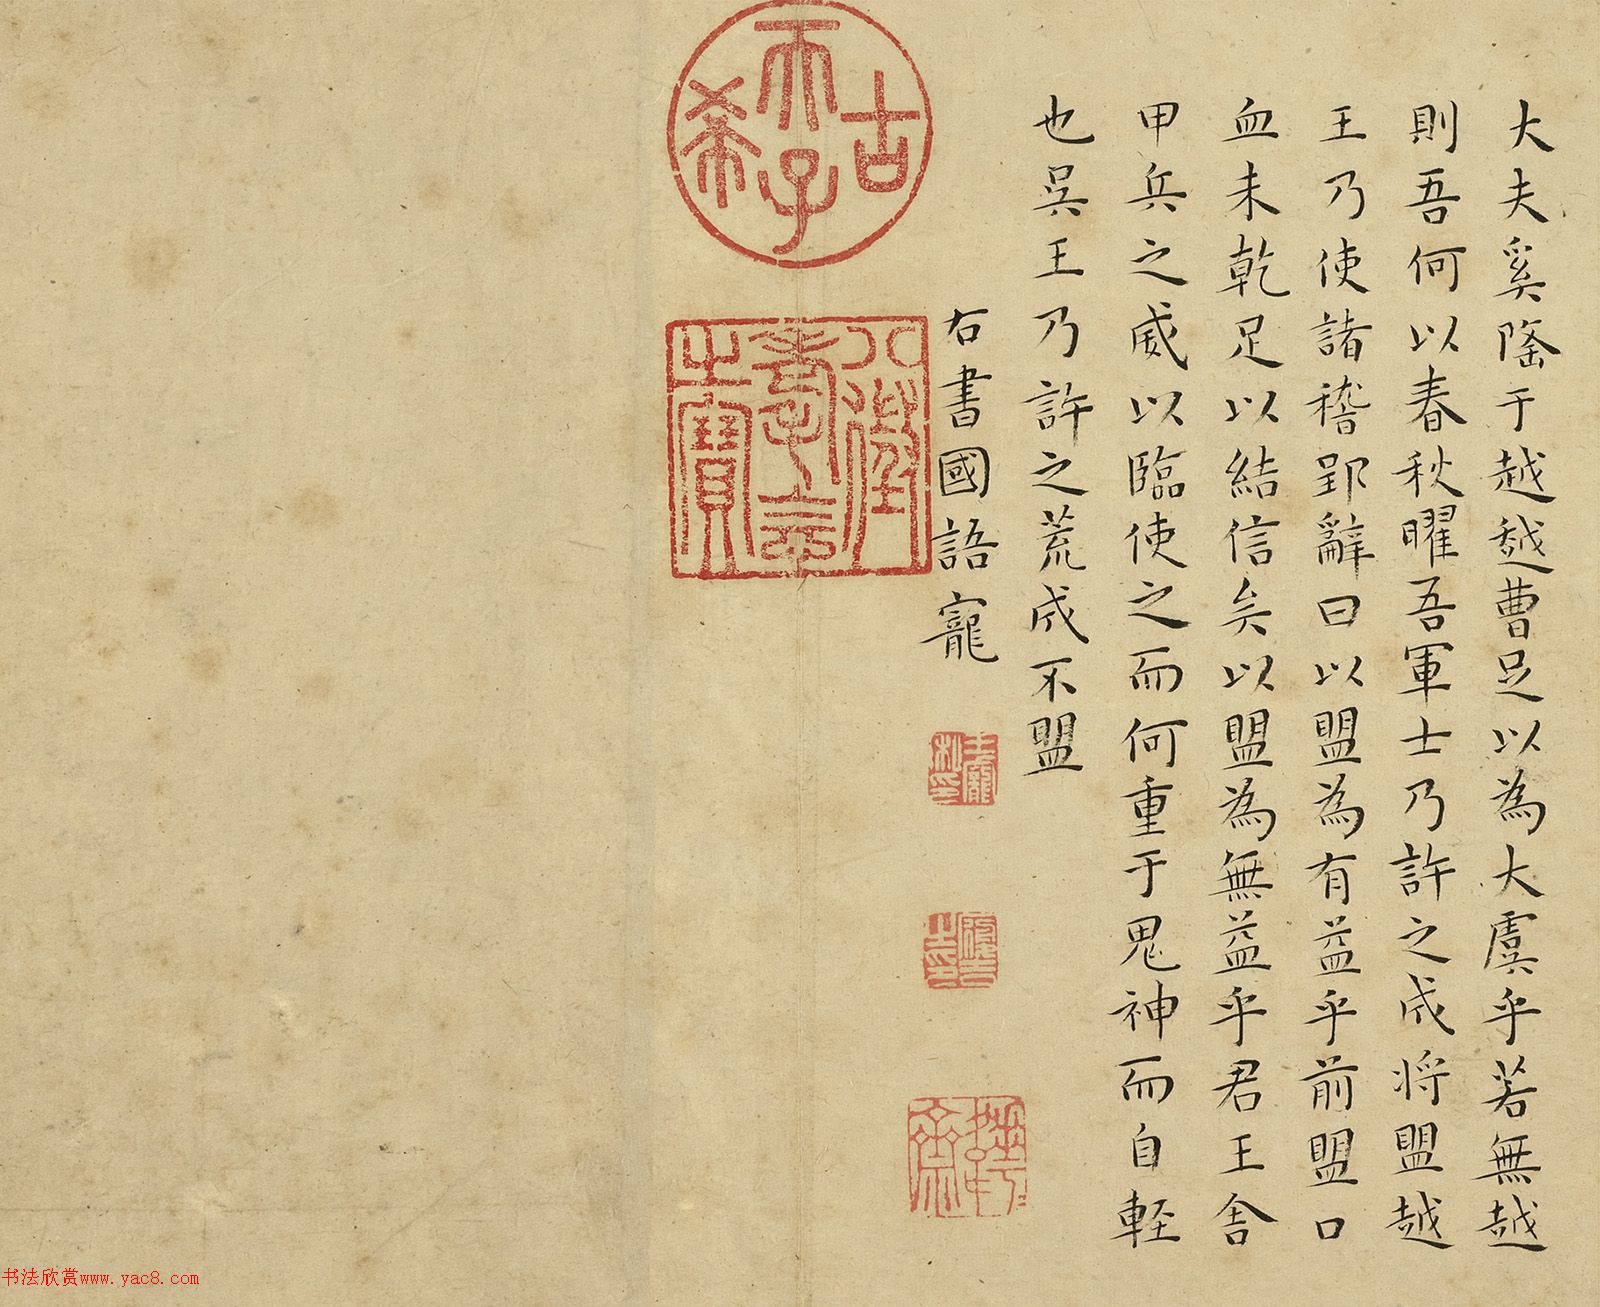 大夫奚隆于越越曹足以為大虞乎若無越
則吾何以春秋曜吾軍士乃許之成將盟越
王乃使諸稽郢辭曰以盟為有益乎前盟口
血未乾足以結信矣以盟為無益乎君王舍
甲兵之威以臨使之而何重于鬼神而自輕
也吳王乃許之荒成不盟
右書國語寵
王寵私印
古希天子
八徵耄念之寶
书法欣赏www.yac8.com